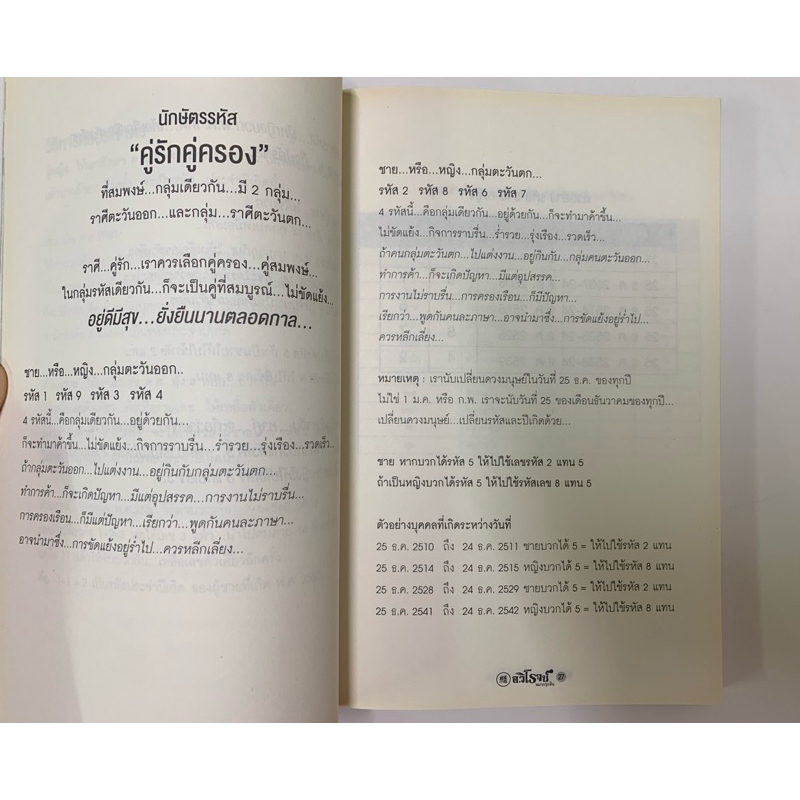 นักษัตรรหัส
“คู่รักคู่ครอง”
ที่สมพงษ์...กลุ่มเดียวกัน...มี 2 กลุ่ม...
ราศีตะวันออก...และกลุ่ม...ราศีตะวันตก...
ราศี...คู่รัก...เราควรเลือกคู่ครอง...คู่สมพงษ์...
ในกลุ่มรหัสเดียวกัน...ก็จะเป็นคู่ที่สมบูรณ์...ไม่ขัดแย้ง...
อยู่ดีมีสุข...ยั่งยืนนานตลอดกาล...
ชาย...หรือ...หญิง...กลุ่มตะวันออก..
รหัส 1 รหัส 9 รหัส 3 รหัส 4
4 รหัสนี้...คือกลุ่มเดียวกัน...อยู่ด้วยกัน...
ก็จะทำมาค้าขึ้น...ไม่ขัดแย้ง...กิจการราบรื่น...ร่ำรวย...รุ่งเรือง...รวดเร็ว...
ถ้ากลุ่มตะวันออก...ไปแต่งงาน...อยู่กินกับกลุ่มตะวันตก...
ทำการค้า...ก็จะเกิดปัญหา...มีแต่อุปสรรค...การงานไม่ราบรื่น...
การครองเรือน...ก็มีแต่ปัญหา...เรียกว่า...พูดกันคนละภาษา...
อาจนำมาซึ่ง...การขัดแย้งอยู่ร่ำไป...ควรหลีกเลี่ยง...
ชาย...หรือ...หญิง...กลุ่มตะวันตก...
รหัส 2 รหัส 8 รหัส 6 รหัส 7
4 รหัสนี้...คือกลุ่มเดียวกัน...อยู่ด้วยกัน...ก็จะทำมาค้าขึ้น...
ไม่ขัดแย้ง...กิจการราบรื่น...ร่ำรวย...รุ่งเรือง...รวดเร็ว...
ถ้าคนกลุ่มตะวันตก...ไปแต่งงาน...อยู่กินกับ...กลุ่มคนตะวันออก...
ทำการค้า...ก็จะเกิดปัญหา...มีแต่อุปสรรค...
การงานไม่ราบรื่น...การครองเรือน...ก็มีปัญหา...
เรียกว่า...พูดกันคนละภาษา...อาจนำมาซึ่ง...การขัดแย้งอยู่ร่ำไป...
ควรหลีกเลี่ยง...
หมายเหตุ : เรานับเปลี่ยนดวงมนุษย์ในวันที่ 25 ธ.ค. ของทุกปี
ไม่ใช่ 1 ม.ค. หรือ ก.พ. เราจะนับวันที่ 25 ของเดือนธันวาคมของทุกปี...
เปลี่ยนดวงมนุษย์...เปลี่ยนรหัสและปีเกิดด้วย...
ชาย หากบวกได้รหัส 5 ให้ไปใช้เลขรหัส 2 แทน 5
ถ้าเป็นหญิงบวกได้รหัส 5 ให้ไปใช้รหัสเลข 8 แทน 5
ตัวอย่างบุคคลที่เกิดระหว่างวันที่
25 ธ.ค. 2510 ถึง 24 ธ.ค. 2511 ชายบวกได้ 5 = ให้ไปใช้รหัส 2 แทน
25 ธ.ค. 2514 ถึง 24 ธ.ค. 2515 หญิงบวกได้ 5 = ให้ไปใช้รหัส 8 แทน
25 ธ.ค. 2528 ถึง 24 ธ.ค. 2529 ชายบวกได้ 5 = ให้ไปใช้รหัส 2 แทน
25 ธ.ค. 2541 ถึง 24 ธ.ค. 2542 หญิงบวกได้ 5 = ให้ไปใช้รหัส 8 แทน
อวิโรจน์ 27